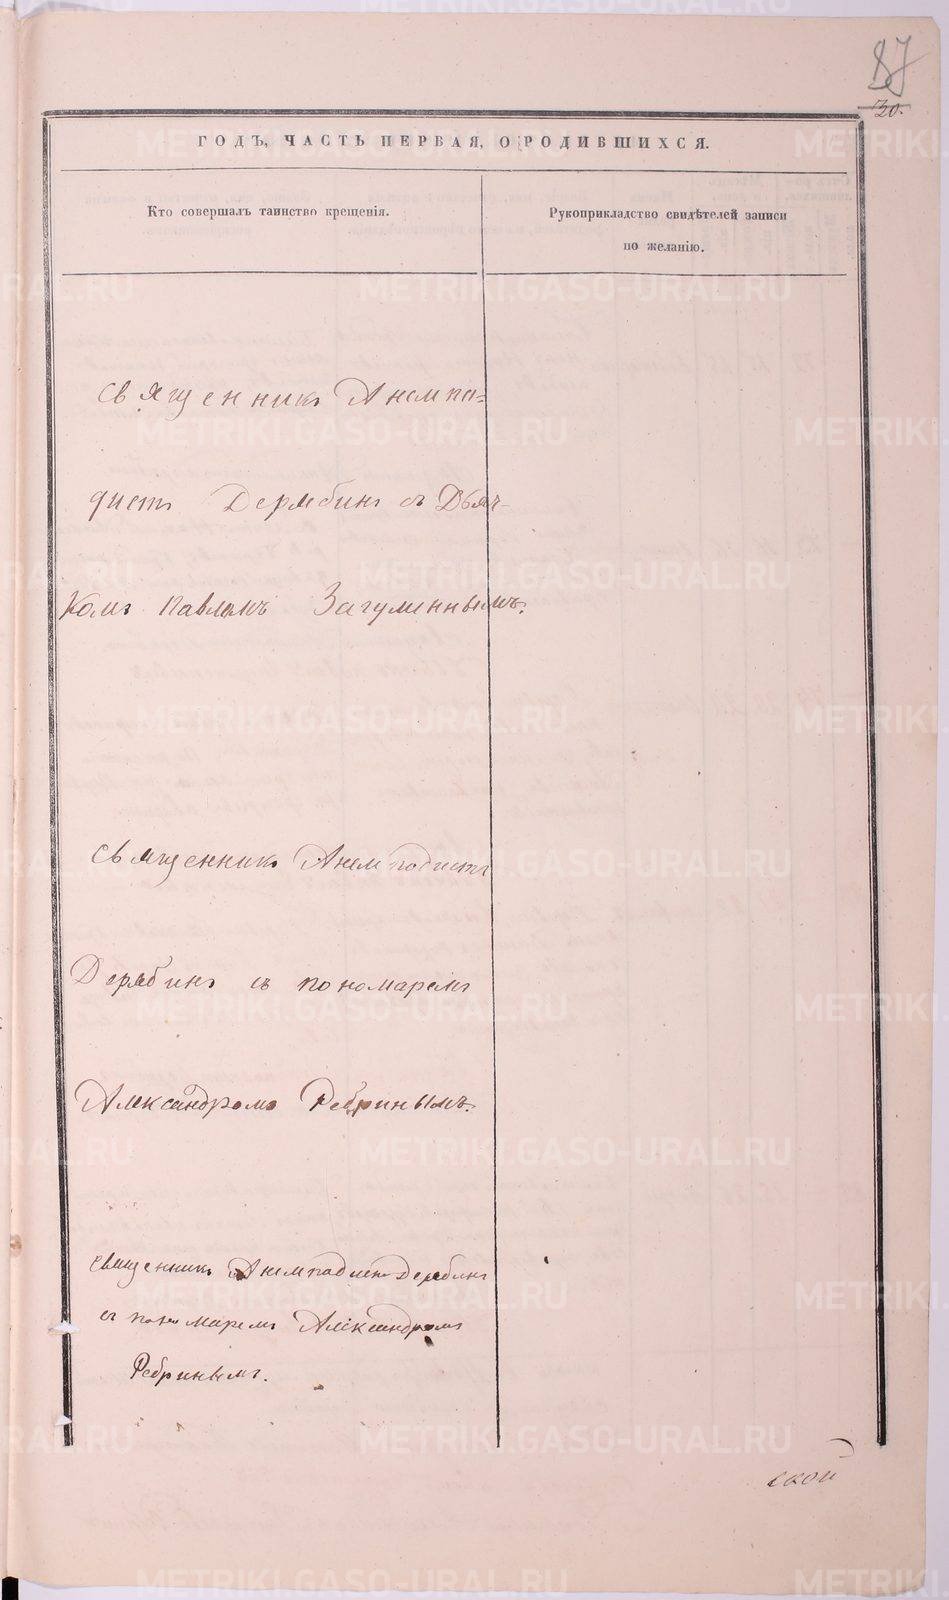 87
30.
ГОДЪ, ЧАСТЬ ПЕРВАЯ, О РОДИВШИХСЯ.
Кто совершалъ таинство крещенія.
Рукоприкладство свидѣтелей записи
по желанію.
священникъ Анемпа=
дистъ Дерябинъ съ Дьяч-
комъ Павломъ Загуминнымъ.
священникъ Анемподистъ
Дерябинъ съ пономаремъ
Александромъ Ребринымъ.
священникъ Дерябинъ
съ пономаремъ Александромъ
Ребринымъ.
ской
METRIKI.GASO-URAL.RU